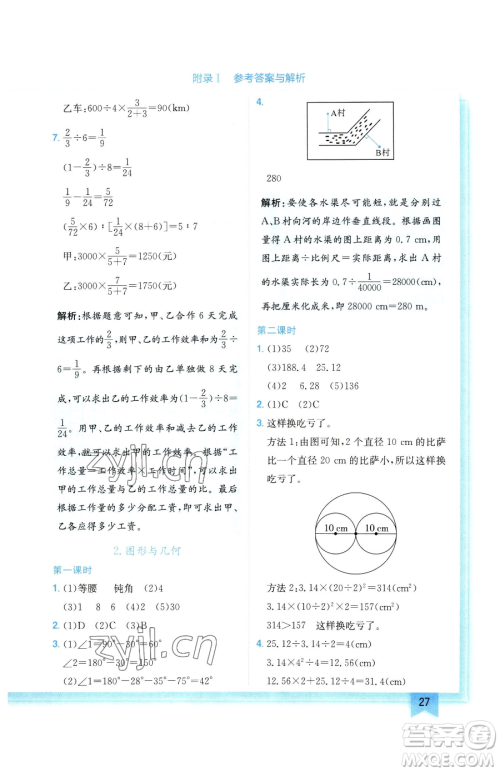 附录Ⅰ 参考答案与解析
乙车:600÷4×3/(2+3)=90(km)
7. 2/3÷6=1/9
(1-2/3)÷8=1/24
1/9-1/24=5/72
(5/72×6):[1/24×(8+6)]=5:7
甲:3000×5/(5+7)=1250(元)
乙:3000×7/(5+7)=1750(元)
解析:根据题意可知,甲、乙合作 6 天完成
了这项工作的2/3,甲、乙的工作效率和为2/3
÷6=1/9。再根据剩下的由乙单独做 8 天完
成,可以求出乙的工作效率为(1-2/3)÷8=
1/24。用甲、乙的工作效率和减去乙的工作
效率,可以求出甲的工作效率,根据“工作
总量=工作效率×工作时间”可以求出
甲的工作总量与乙的工作总量的比,甲、
乙各应得多少工资,根据“工作总量的
比=工作总量的多少分配工资”,可以求出
甲、乙各应得多少工资。
2.图形与几何
第一课时
1. (1)等腰 钝角 (2)4
(3)1 8 6 (4)9
2. (1)D (2)C (3)B
3. (1)∠1=180°-90°-48°=42°
(2)∠2=180°-42°=138°
4.
A村
B村
280
解析:要使各水渠尽可能短,就可以分别过
A、B村向河的岸边作垂直线段。根据测
量得出 A 村的水渠的图上距离为 0.7 cm,用
图上距离÷比例尺=实际距离,求出 A 村
的水渠长 0.7÷1/40000=28000(cm),
再把厘米化成米,即 28000 cm=280 m。
第二课时
1. (1)35 (2)72
(3)188.4 25.12
(4)2 6.28 (5)136
2. (1)C (2)C
3. 这样换吃亏了。
方法 1:由图可知,2 个直径 10 cm 的比
萨比 1 个直径 20 cm 的比萨小,所以这
样换吃亏了。
10 cm 10 cm
方法2:3.14×(20÷2)²=314(cm²)
3.14×(10÷2)²×2=157(cm²)
314>157 这样换吃亏了。
4. 25.12÷3.14÷2=4(cm)
12.56÷3.14÷2=2(cm)
12.56×2+3.14×2=31.4(cm)
27
zyjl.cn
zyjl.cn
答案圈
MXQE.COM